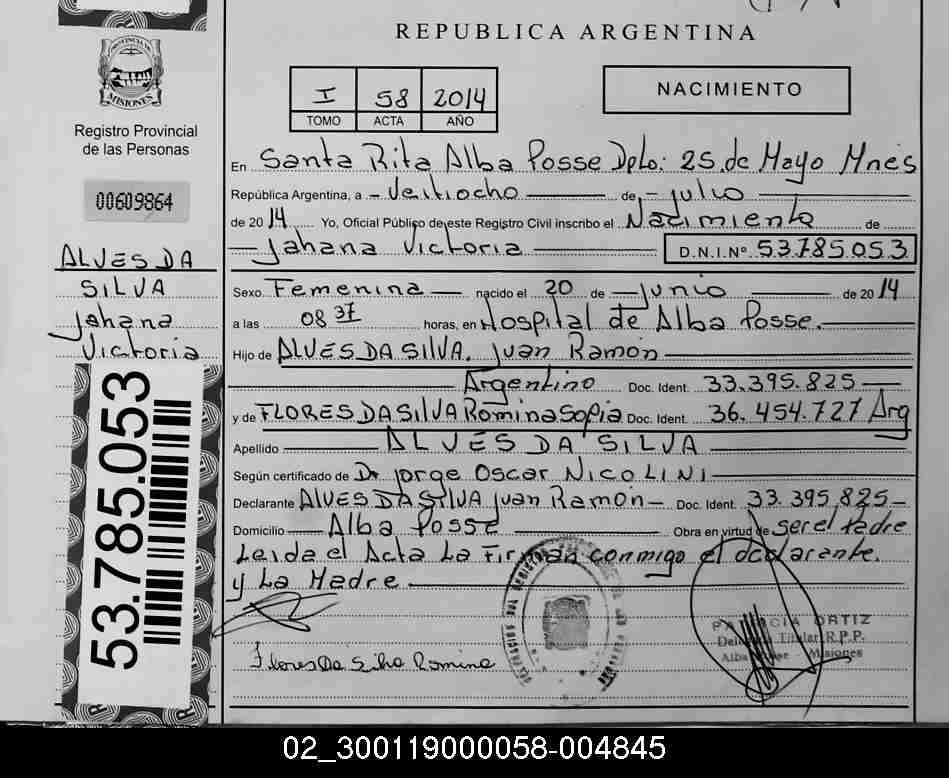 REPUBLICA ARGENTINA
PROVINCIA DE
MISIONES
Registro Provincial
de las Personas
00609864
I 58 2014
TOMO ACTA AÑO
NACIMIENTO
En Santa Rita Alba Posse Dpto: 25 de Mayo Mnes
República Argentina, a - Veitiocho de - julio
de 2014 Yo, Oficial Público de este Registro Civil inscribo el Nacimiento de
Jahana Victoria D.N.I.Nº 53.785.053
ALVES DA
SILVA
Jahana
Victoria
Sexo Femenina nacido el 20 de junio de 2014
a las 08 37 horas, en Hospital de Alba Posse.
Hijo de ALVES DA SILVA, Juan Ramón
Argentino Doc. Ident. 33.395.825
y de FLORES DA SILVA Romina Sofia Doc. Ident. 36.454.727 Arg
Apellido ALVES DA SILVA
Según certificado de Dr Jorge Oscar NICOLINI
Declarante ALVES DA SILVA Juan Ramón Doc. Ident. 33.395.825
Domicilio Alba Posse Obra en virtud de ser el Padre
Leida el Acta La Firman conmigo el declarante.
y La Madre
Flores Da Silva Romina
ORTIZ
Titular R.P.P.
Alba Misiones
53.785.053
02_300119000058-004845